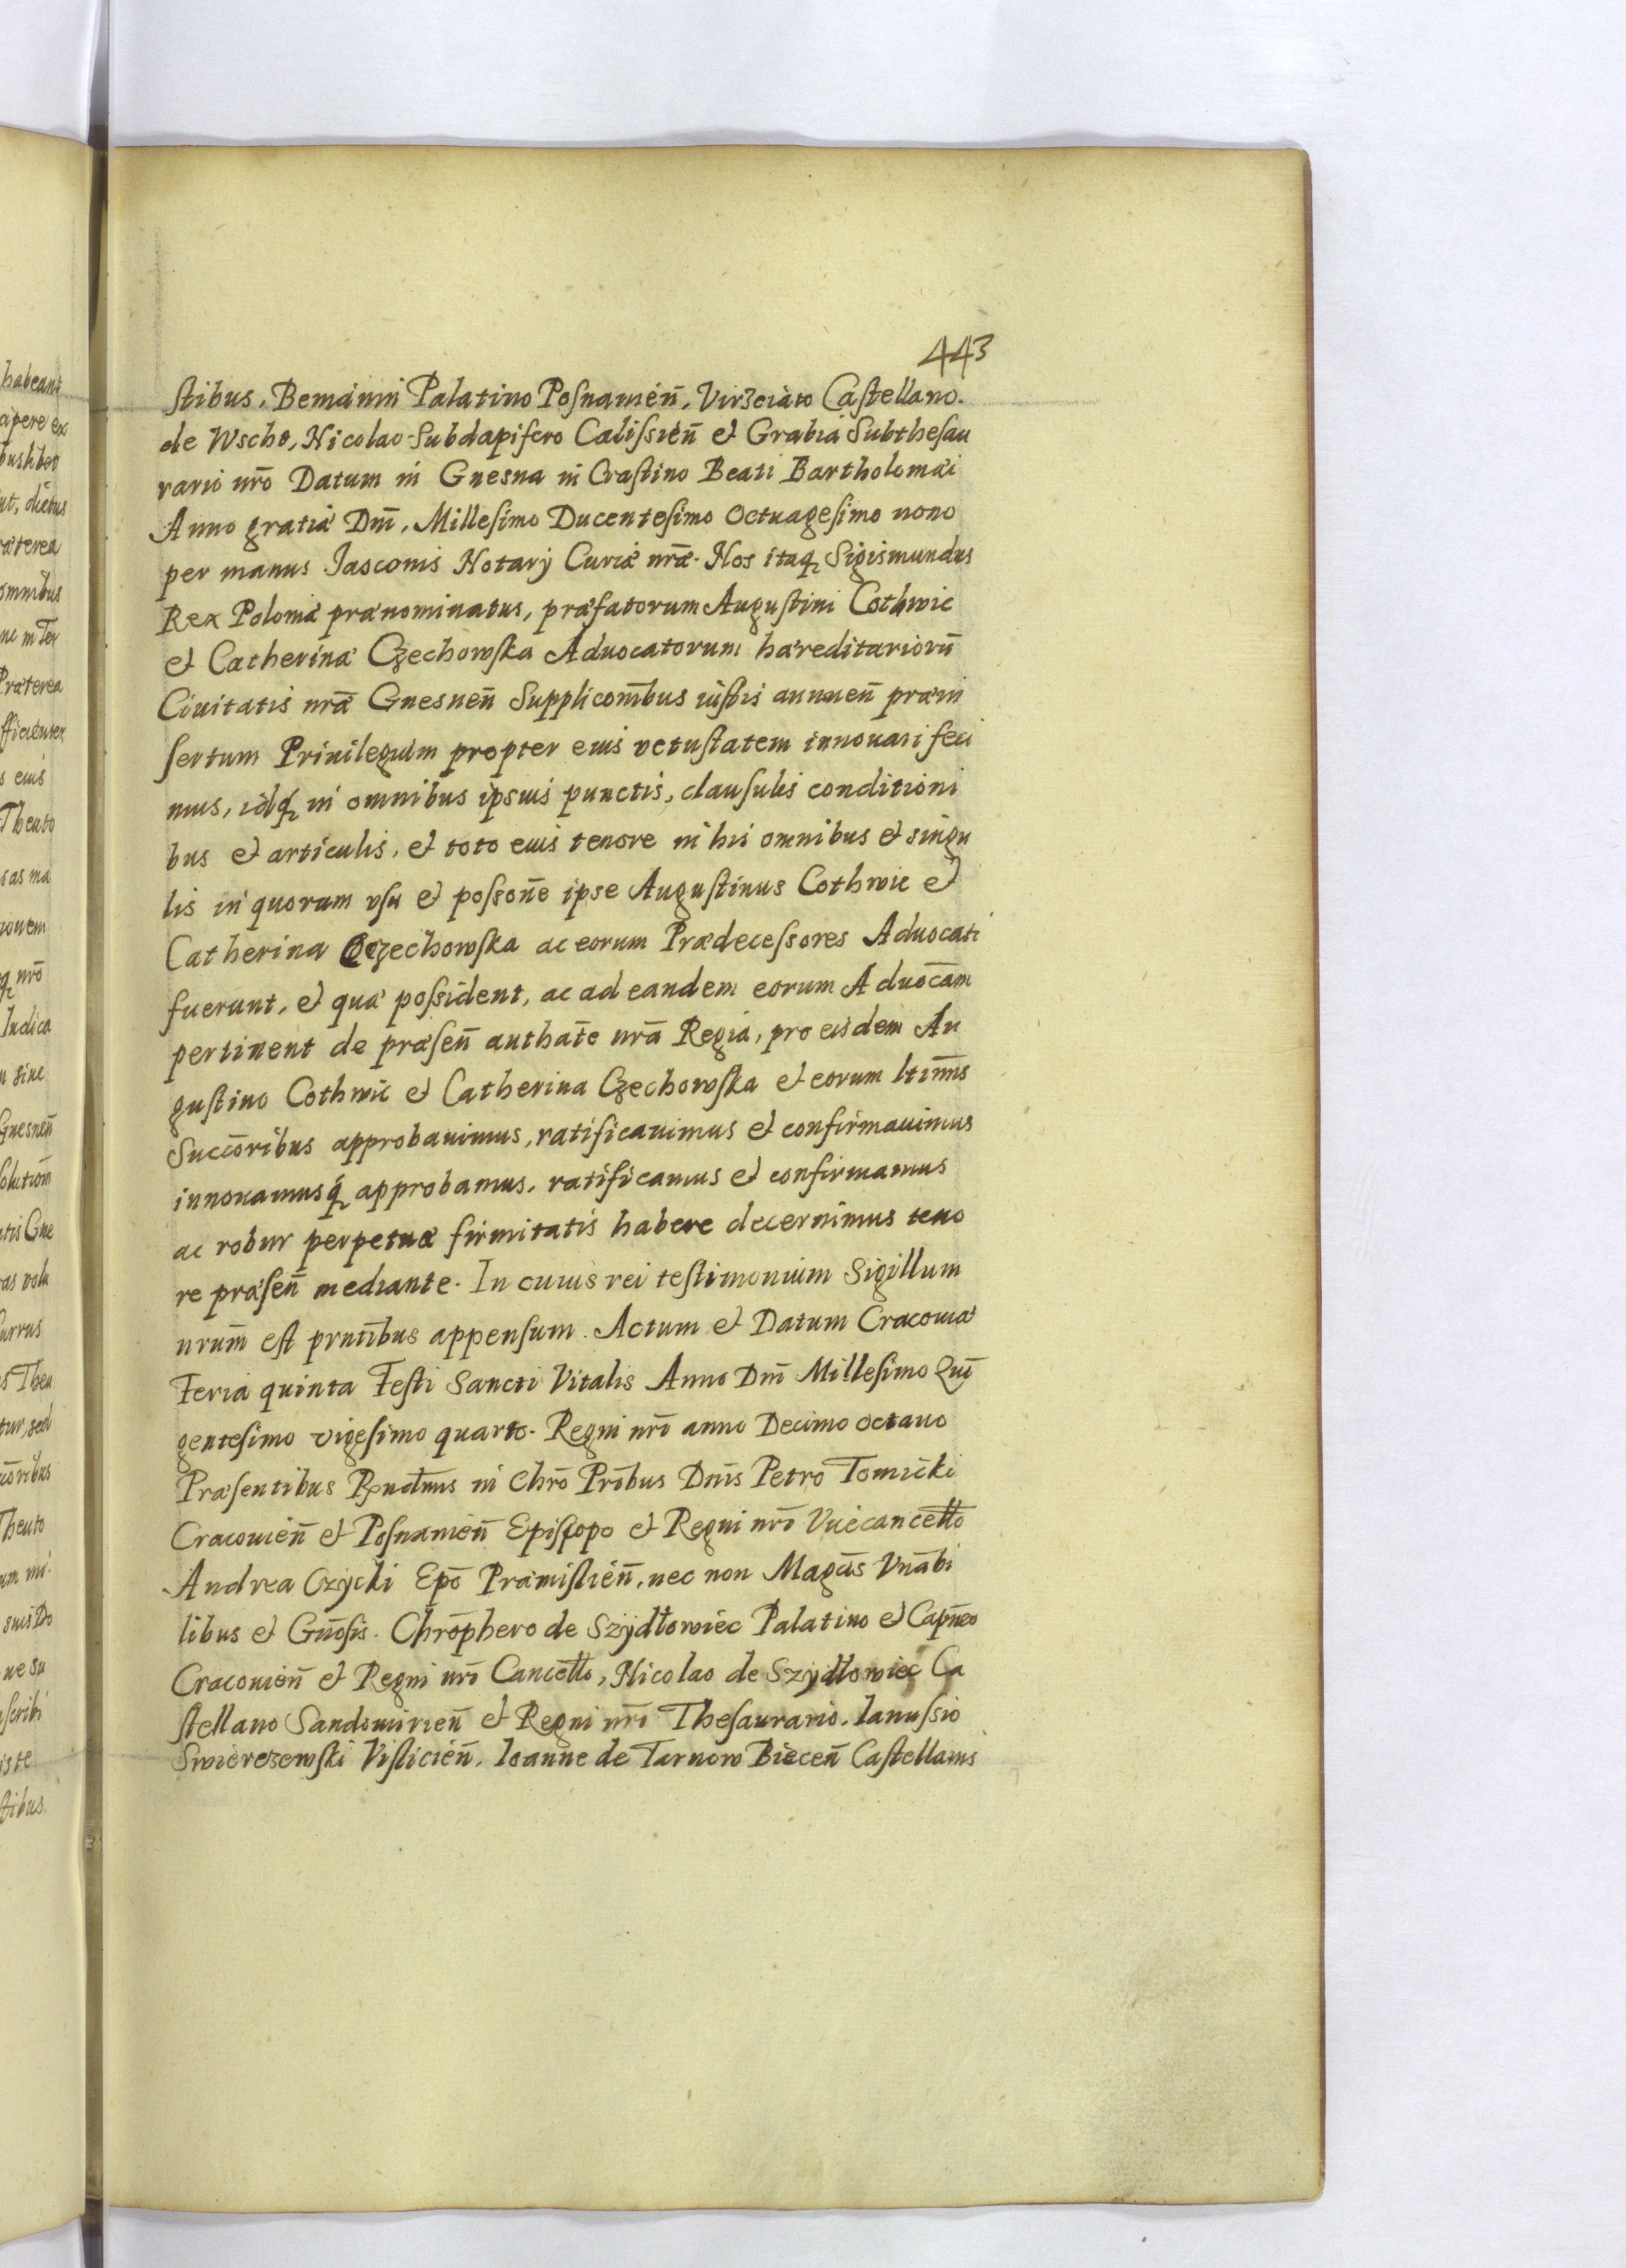 443
stibus, Bemāmi Palatino Posnanien̄, Virzciato Castellano.
de Wscho, Nicolao Subdapifero Calissien̄ et Grabia Subthesau
rario nr̄o Datum in Gnesna in Crastino Beati Bartholomæi
Anno gratiæ Dnī, Millesimo Ducentesimo Octuagesimo nono
per manus Jasconis Notarÿ Curiæ nr̄æ. Nos itaq₃ Sigismundus
Rex Poloniæ prænominatus, præfatorum Augustini Cothwic
et Catherinæ Czechowska Aduocatorum hæreditariorū
Ciuitatis nr̄æ Gnesnen̄ Supplicōnibus iustis annuen̄ præin
sertum Priuilegium propter eius vetustatem innouari feci
mus, idq₃ in omnibus ipsius punctis, clausulis conditioni
bus et articulis, et toto eius tenore in his omnibus et singu
lis in quorum vsu et possōne ipse Augustinus Cothwic et
Catherina Czechowska ac eorum Prædecessores Aduocati
fuerunt, et quæ possident, ac ad eandem eorum Aduocām
pertinent de præsen̄ authātē nr̄a Regia, pro eisdem Au
gustino Cothwic et Catherina Czechowska et eorum ltimis̄
Succōribus approbauimus, ratificauimus et confirmauimus
innouamusq₃ approbamus, ratificamus et confirmamus
ac robur perpetuæ firmitatis habere decernimus teno
re præsen̄ mediante. In cuius rei testimonium Sigillum
nrum̄ est prntībus appensum. Actum et Datum Cracouiæ
Feria quinta Festi Sancti Vitalis Anno Dnī Millesimo Quī
gentesimo vigesimo quarto. Regni nr̄i anno Decimo octauo
Præsentibus Rndīmis in Chrō Prībus Dnīs Petro Tomicki
Cracouien̄ et Posnanien̄ Episcopo et Regni nr̄i Vicecancełło
Andrea Czycki Epō Præmislien̄, nec non Magcīs Vnābi
libus et Gnōsis. Chrōphero de Szÿdłowiec Palatino et Capnēo
Cracouien̄ et Regni nr̄i Cancełło, Nicolao de Szÿdłowiec Ca
stellano Sandomirien̄ et Regni nr̄i Thesaurario. Ianussio
Swierczewski Vislicien̄. Ioanne de Tarnow Biecen̄ Castellanis